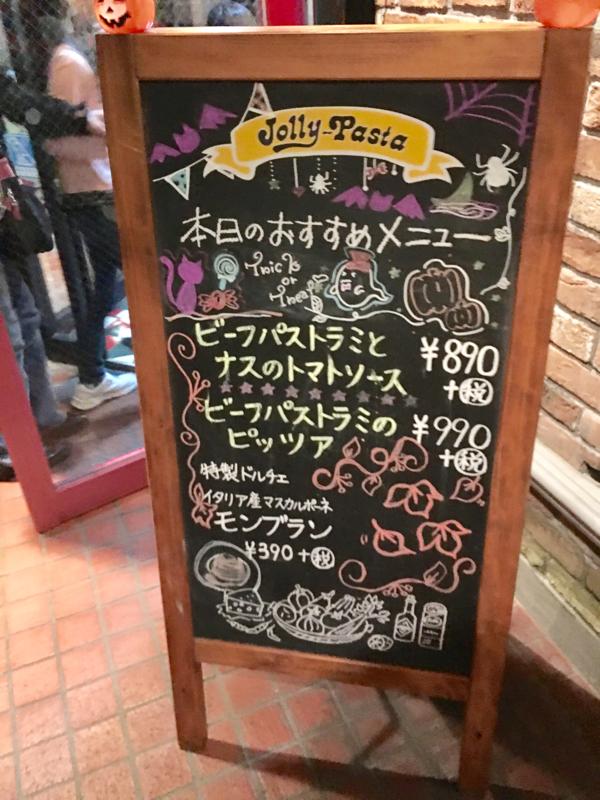 Jolly-Pasta
本日のおすすめメニュー
Trick's
or
Treat
ビーフパストラミと
ナスのトマトソース
¥890
+税
ビーフパストラミの
ピッツァ
¥990
+税
特製ドルチェ
イタリア産マスカルポーネ
モンブラン
¥390+税